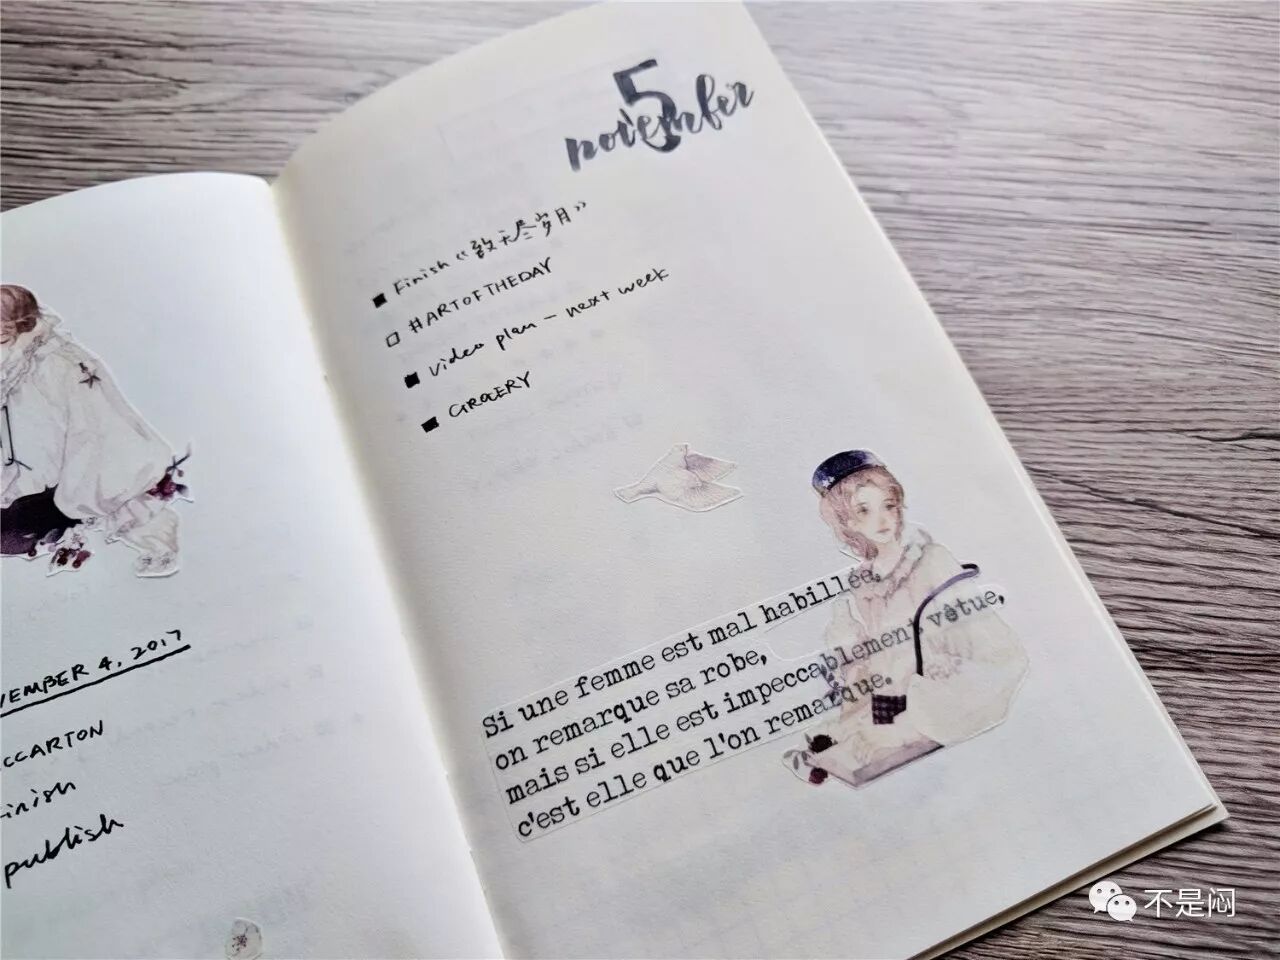 VEMBER 4, 2017
CCARTON
inish
publish
5
november
Finish《致无尽岁月》
#ARTOFTHEDAY
video plan - next week
GROCERY
Si une femme est mal habillée,
on remarque sa robe,
mais si elle est impeccablement vêtue,
c'est elle que l'on remarque.
不是闷